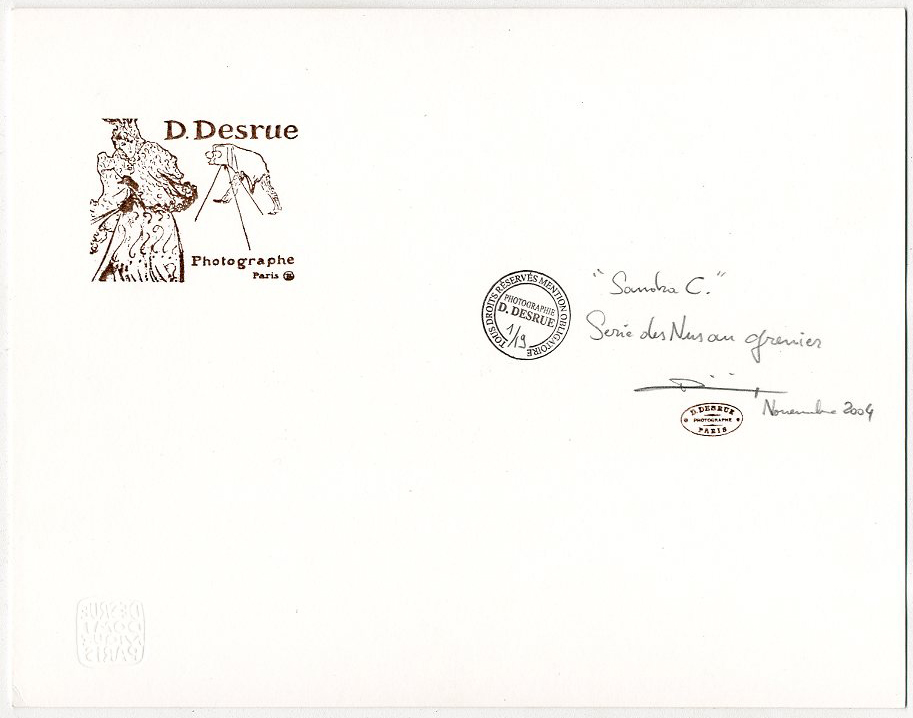 D. Desrue
Photographe
Paris
TOUS DROITS RÉSERVÉS MENTION OBLIGATOIRE
PHOTOGRAPHIE
D. DESRUE
1/19
"Sandra C."
Serie des Nus au grenier
Novembre 2004
D. DESRUE
PHOTOGRAPHE
PARIS
DESRUE
PARIS